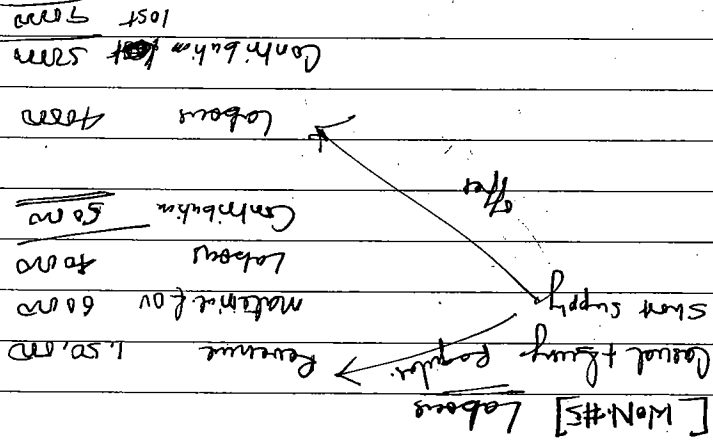 [WON#5] Labour
Casual + Regular Revenue 1,50,000
Short supply Material & OV 60000
Labour 40000
Contribution 50000
offer
Labour 40000
Contribution 50000
lost 90000